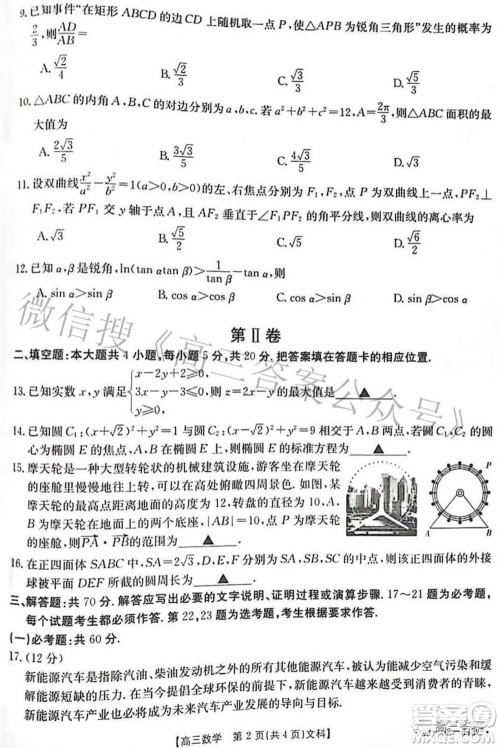 9.已知事件“在矩形 ABCD 的边 CD 上随机取一点 P,使△APB 为锐角三角形”发生的概率为
2/3,则AD/AB=
A.√2/4 B.√2/3 C.√3/3 D.√5/3
10.△ABC 的内角 A,B,C 的对边分别为 a,b,c.若 a²+b²+c²=12,A=2π/3,则△ABC 面积的最
大值为
A.2√3/5 B.3√3/5 C.4√3/5 D.√3
11.设双曲线x²/a²-y²/b²=1(a>0,b>0)的左、右焦点分别为 F₁,F₂,点 P 为双曲线上一点,PF₂⊥
F₁F₂,若 PF₁ 交 y 轴于点 A,且 AF₂ 垂直于∠F₁PF₂ 的角平分线,则双曲线的离心率为
A.√3 B.√5/2 C.√2 D.√6/2
12.已知 α,β 是锐角,ln(tan αtan β)>1/tan α-tan β,则
A.sin α>sin β B.cos α>cos β C.sin α>cos β D.cos α>sin β
第Ⅱ卷
二、填空题:本大题共 4 小题,每小题 5 分,共 20 分.把答案填在答题卡的相应位置.
13.已知实数 x,y 满足{x-2y+2≥0, 3x-y-3≤0, y≥0, 则 z=2x-y 的最大值是 ▲ .
14.已知圆 C₁:(x+√2)²+y²=1 与圆 C₂:(x-√2)²+y²=9 相交于 A,B 两点,若圆 C₁,C₂ 的圆
心为椭圆 E 的焦点,且 A,B 在椭圆 E 上,则椭圆 E 的标准方程为 ▲ .
15.摩天轮是一种大型转轮状的机械建筑设施,游客坐在摩天轮
的座舱里慢慢地往上转,可以在高处俯瞰四周景色.某摩天
轮的最高点距离地面的高度为 12,转盘的直径为 10,A,B
为摩天轮在地面上的两个底座,|AB|=10,点 P 为摩天轮
的座舱,则PA·PB的范围为 ▲ .
16.在正四面体 SABC 中,SA=2√3,D,E,F 分别为 SA,SB,SC 的中点,则该正四面体的外接
球被平面 DEF 所截的圆周长为 ▲ .
三、解答题:共 70 分.解答应写出必要的文字说明、证明过程或演算步骤.17~21 题为必考题,
每个试题考生都必须作答.第 22,23 题为选考题,考生根据要求作答.
(一)必考题:共 60 分.
17.(12 分)
新能源汽车是指除汽油、柴油发动机之外的所有其他能源汽车,被认为能减少空气污染和缓
解能源短缺的压力.在当今提倡全球环保的前提下,新能源汽车越来越受到消费者的青睐,
新能源汽车产业也必将成为未来汽车产业发展的导向与目标.
【高三数学 第 2 页(共 4 页)文科】
微信搜《高三答案公众号》